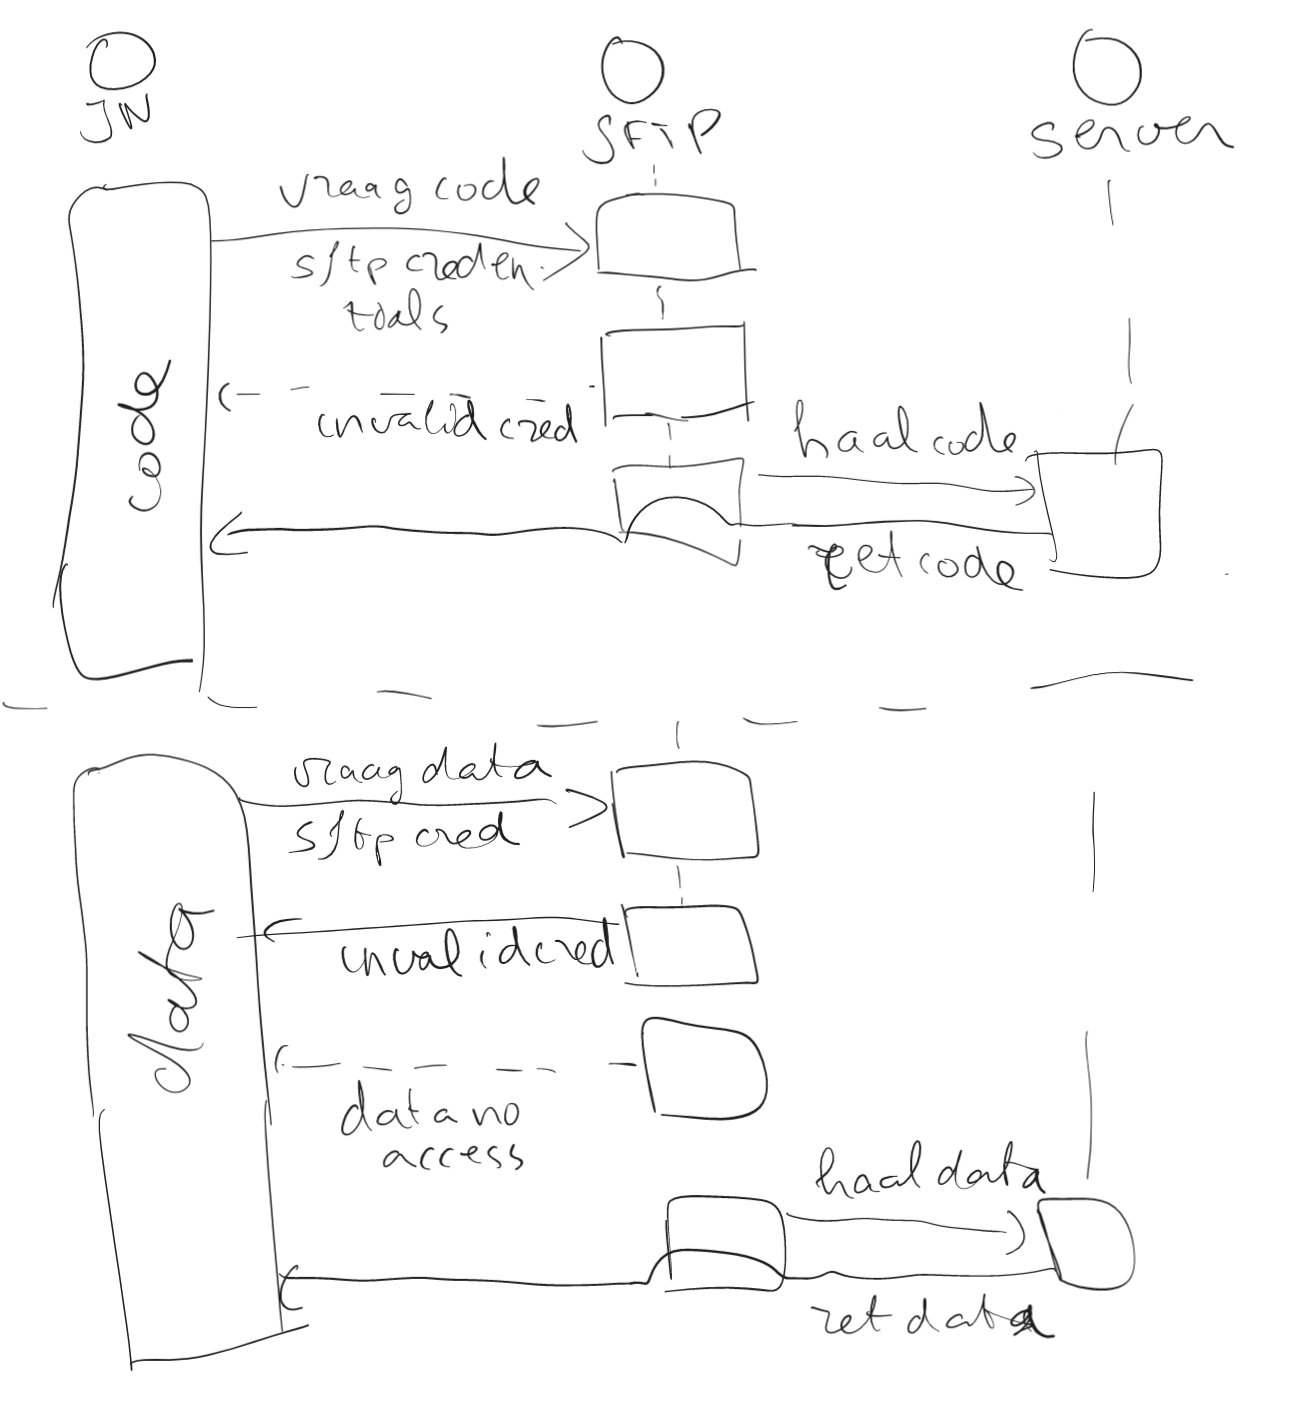 JN
SFTP
server
vraag code
sftp creden.
tials
code
invalid cred
haal code
ret code
vraag data
sftp cred
data
invalid cred
data no
access
haal data
ret data